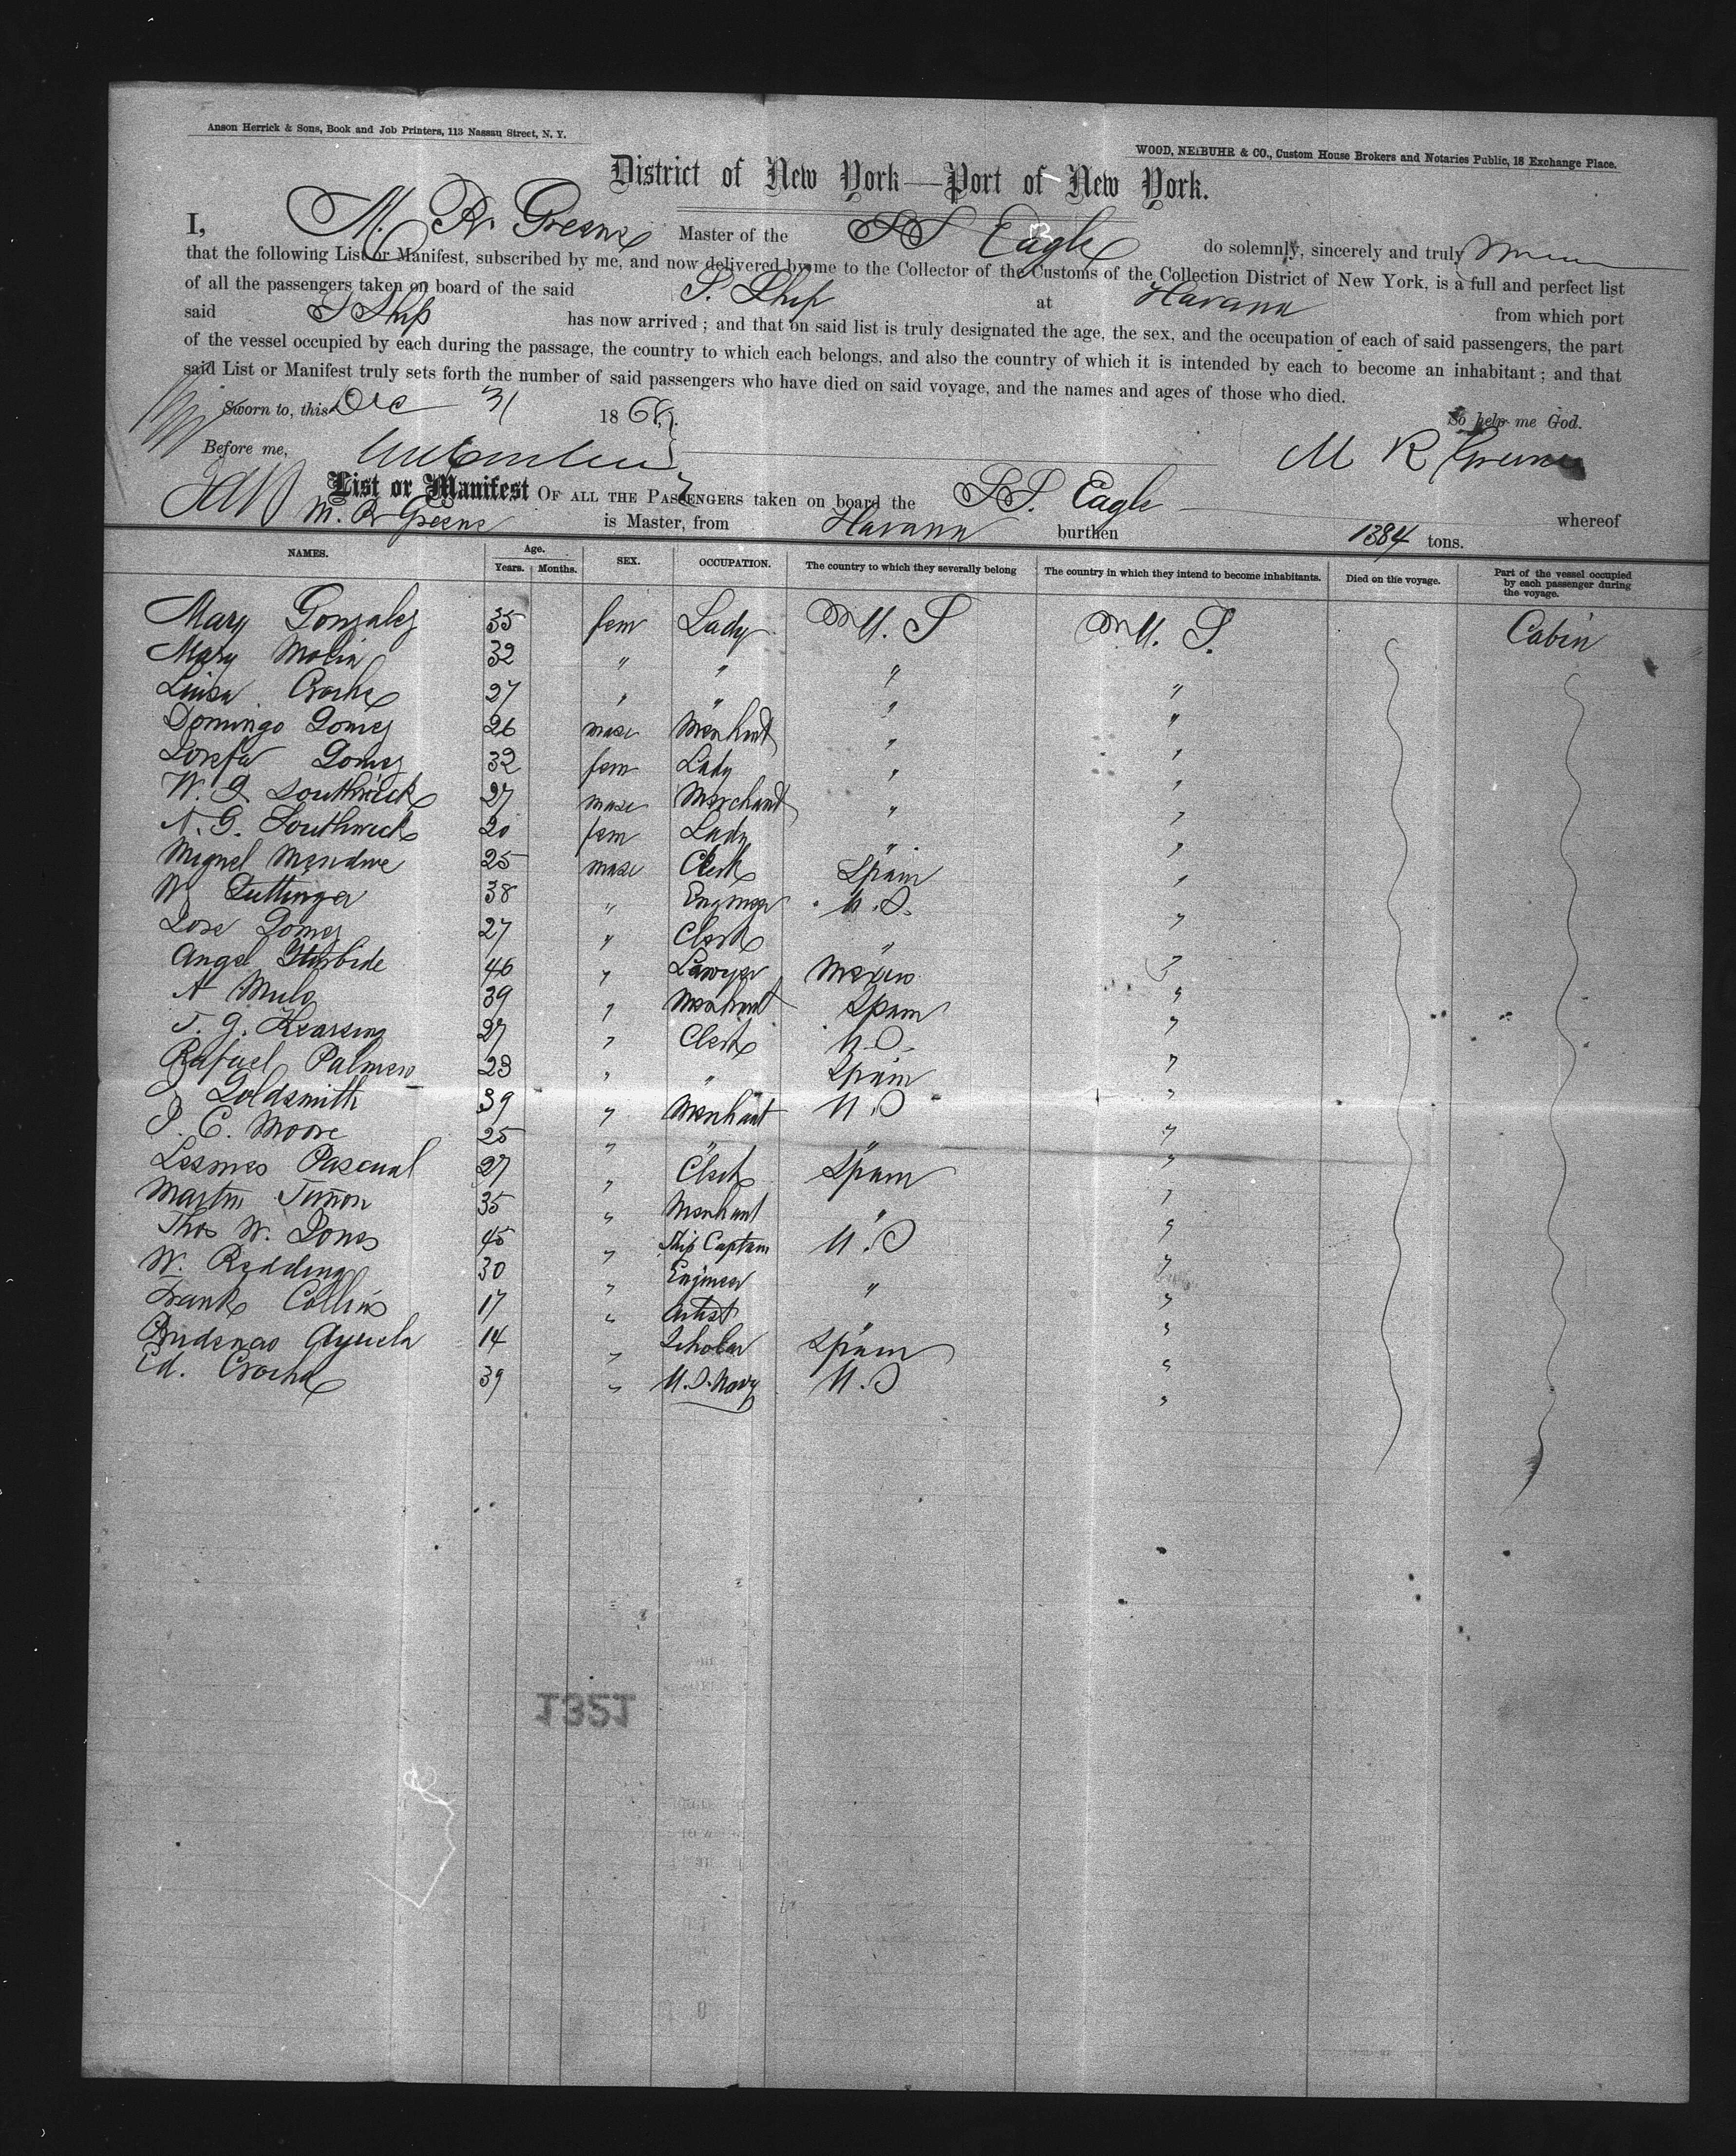 Anson Herrick & Sons, Book and Job Printers, 113 Nassau Street, N. Y.
WOOD, NEIBUHR & CO., Custom House Brokers and Notaries Public, 18 Exchange Place.
District of New York—Port of New York.
I, M. R. Greene Master of the SS Eagle do solemnly, sincerely and truly
that the following List or Manifest, subscribed by me, and now delivered by me to the Collector of the Customs of the Collection District of New York, is a full and perfect list
of all the passengers taken on board of the said S. Ship at Havana from which port
said SShip has now arrived; and that on said list is truly designated the age, the sex, and the occupation of each of said passengers, the part
of the vessel occupied by each during the passage, the country to which each belongs, and also the country of which it is intended by each to become an inhabitant; and that
said List or Manifest truly sets forth the number of said passengers who have died on said voyage, and the names and ages of those who died.
Sworn to, this Dec 31 186 So help me God.
Before me, M R Greene
List or Manifest OF ALL THE PASSENGERS taken on board the SS. Eagle whereof
M. R Greene is Master, from Havana burthen 1384 tons.
NAMES. Age. Years. Months. SEX. OCCUPATION. The country to which they severally belong The country in which they intend to become inhabitants. Died on the voyage. Part of the vessel occupied by each passenger during the voyage.
Mary Gonzalez 35 fem Lady U. S U. S. Cabin
Mary Molin 32 " " " "
Luisa 27 " " " "
Domingo Gomez 26 masc Merchant " "
Josefa Gomez 32 fem Lady " "
W. G Southwick 27 masc Merchant " "
N. G. Southwick 20 fem Lady " "
Miguel Mendive 25 masc Clerk Spain "
W Luttinger 38 " Engineer U.S. "
Jose Gomez 27 " Clerk " "
Angel Iturbide 46 " Lawyer Mexico "
A 39 " Merchant Spain "
T. G. Kearsing 27 " Clerk U.S. "
Rafael Palmero 23 " " Spain "
J Goldsmith 39 " Merchant U.S "
P. C. Moore 25 " " " "
Lesmes Pascual 27 " Clerk Spain "
Martin Timon 35 " Merchant " "
Thos W. Jones 45 " Ship Captain U.S "
W. Redding 30 " Engineer " "
Frank Collins 17 " Artist " "
Ayuela 14 " Scholar Spain "
Ed. 39 " U.S. Navy U.S "
1321